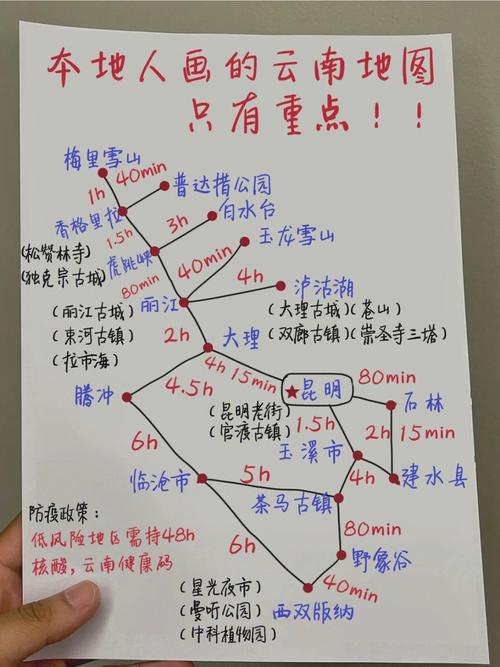 本地人画的云南地图
只有重点！！
梅里雪山
1h
40min
普达措公园
香格里拉
3h
白水台
1.5h
(松赞林寺)
(独克宗古城)
虎跳峡
玉龙雪山
80min
40min
4h
泸沽湖
丽江
(丽江古城)
(束河古镇)
(拉市海)
(大理古城)(苍山)
(双廊古镇)(崇圣寺三塔)
2h
大理
4h 15min
昆明
80min
4.5h
腾冲
(昆明老街)
(官渡古镇)
1.5h
石林
2h 15min
6h
玉溪市
临沧市
5h
4h
建水县
茶马古镇
防疫政策：
低风险地区需持48h
核酸，云南健康码
6h
80min
野象谷
40min
(星光夜市)
(曼听公园)
(中科植物园)
西双版纳